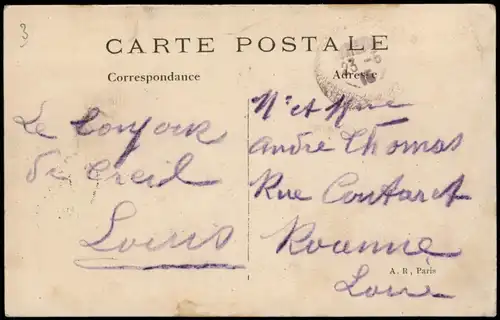 3
CARTE POSTALE
Correspondance
Adresse
23 -5
15
Le bonjour
de Creil
Louis
Mr et Mme
André Thomas
Rue Contaret
Roanne
Loire
A. R, Paris